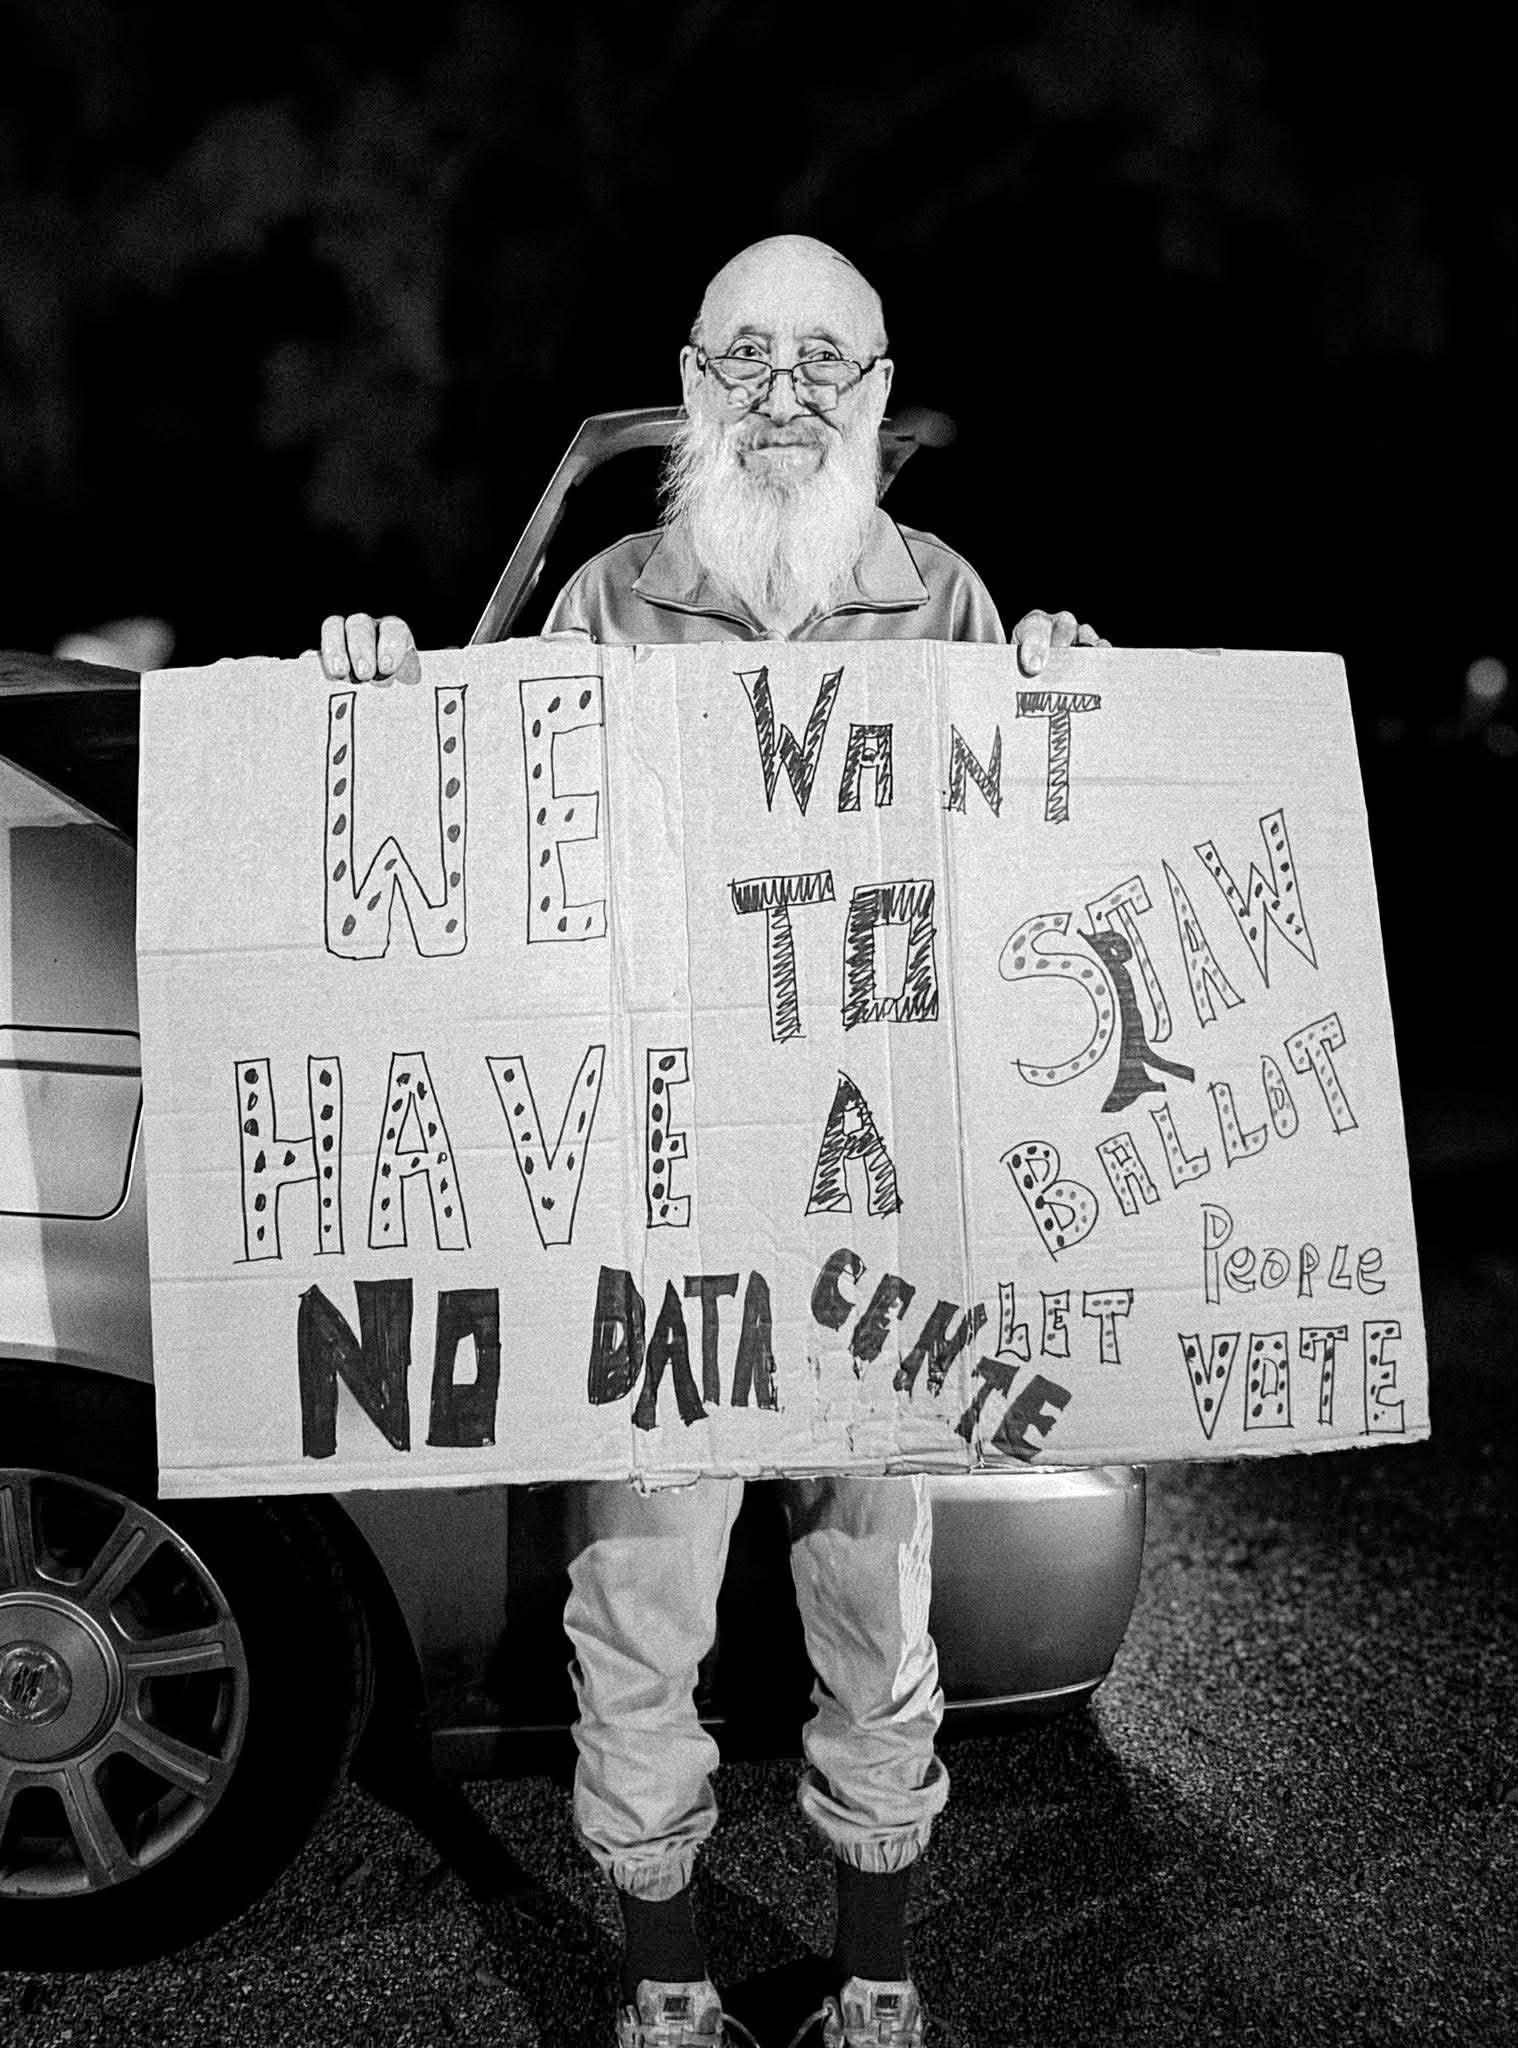 WE WANT
TO STAW
HAVE A BALLOT
PEOPLE
NO DATA CENTE LET VOTE